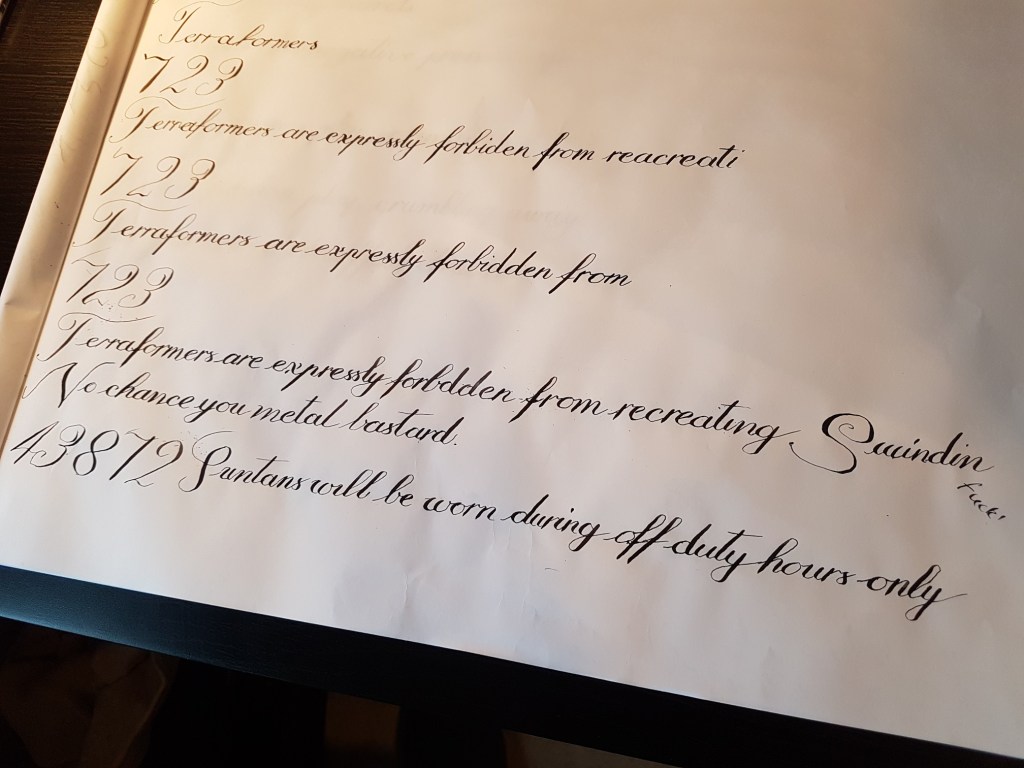 Terraformers
723
Terraformers are expressly forbiden from reacreati
723
Terraformers are expressly forbidden from
723
Terraformers are expressly forbdden from recreating Swindin
fuck!
No chance you metal bastard.
43872 Suntans will be worn during off duty hours only